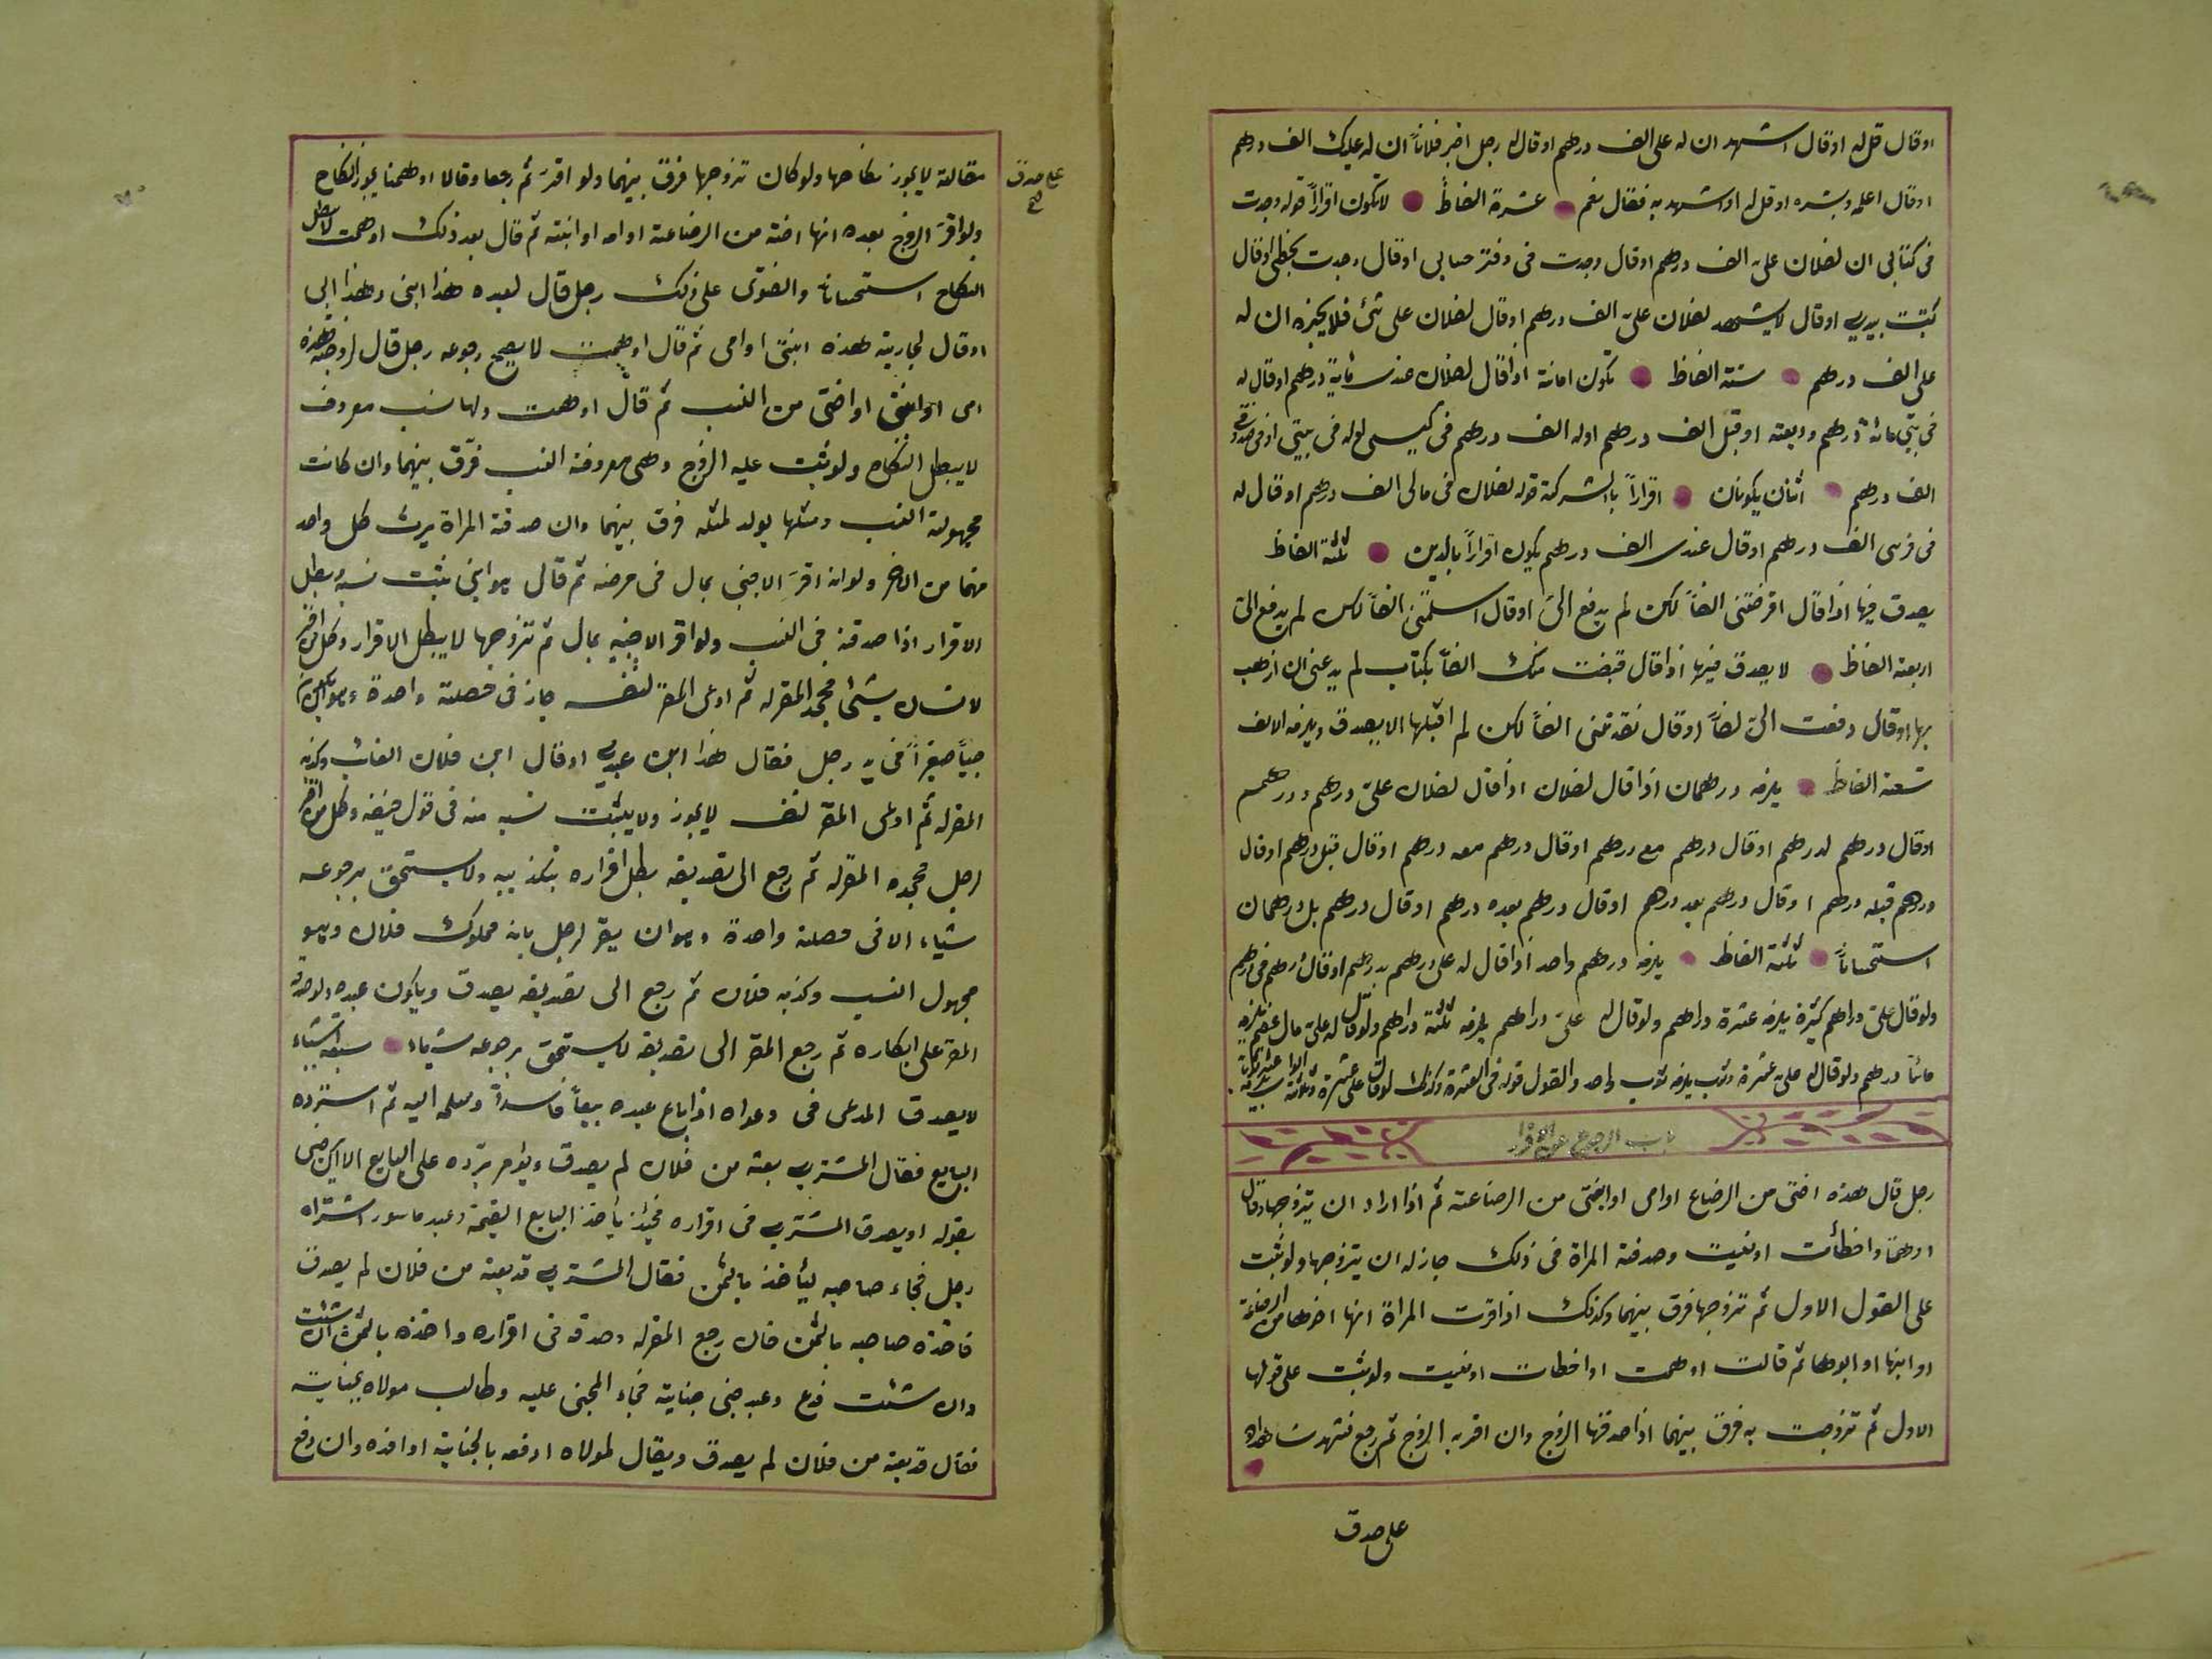 او قال قل له او قال اشهد ان له على الف درهم او قال له رجل اخبر فلاناً ان له عليك الف درهم
او قال اعلمه وبشره او قل له او اشهد به فقال نعم عشرة الفاظ لا تكون اقراراً قوله وجدت
فى كتابى ان لفلان علىّ الف درهم او قال وجدت فى دفتر حسابى او قال وجدت بخطى او قال
كتبت بيدى او قال لا يشهد لفلان علىّ الف درهم او قال لفلان على شئ فلا يخبره ان له
على الف درهم ستة الفاظ تكون امانة اذا قال لفلان عندى مائة درهم او قال له
فى بيتى مائة درهم وديعته او قبلى الف درهم او له الف درهم فى كيسى او له فى بيتى او فى صندوقى
الف درهم اثنان يكونان اقراراً بالشركة قوله لفلان فى مالى الف درهم او قال له
فى فرسى الف درهم او قال عندى الف درهم يكون اقراراً بالدين ثلثة الفاظ
يصدق فيها اذا قال اقرضتنى الفاً لكن لم يدفع الىّ او قال اسلمتنى الفاً لكن لم يدفع الىّ
اربعة الفاظ لا يصدق فيها اذا قال قبضت منك الفاً لم يدعنى ان اذهب
بها او قال دفعت الىّ الفاً او قال نقدتنى الفاً لكن لم اقبلها لا يصدق ويلزمه الالف
تسعة الفاظ يلزمه درهمان اذا قال لفلان اذا قال لفلان علىّ درهم ودرهم
او قال درهم درهم او قال درهم مع درهم او قال درهم معه درهم او قال قبل درهم او قال
درهم قبله درهم او قال درهم بعد درهم او قال درهم بعده درهم او قال درهم بل درهمان
استحساناً ثلثة الفاظ يلزمه درهم واحد اذا قال له على درهم بدرهم او قال درهم فى درهم
ولو قال علىّ دراهم كثيرة يلزمه عشرة دراهم ولو قال له علىّ دراهم يلزمه ثلثة دراهم ولو قال له علىّ مال عظيم يلزمه
مائتا درهم ولو قال له علىّ عشرة وثوب يلزمه ثوب واحد والقول قوله فى العشرة وكذلك لو قال على عشرة وثلاثة
باب الرجوع عن الاقرار
رجل قال هذه اختى من الرضاع او امى او ابنتى من الرضاعة ثم اذا اراد ان يتزوجها وقال
اوهمت او اخطأت او نسيت وصدقته المرأة فى ذلك جاز له ان يتزوجها ولو ثبت
على القول الاول ثم تزوجها فرق بينهما وكذلك اذا اقرت المرأة انها اخوها من الرضاعة
او ابنها او ابوها ثم قالت اوهمت او اخطات او نسيت ولو ثبت على قولها
الاول ثم تزوجت به فرق بينهما اذا صدقها الزوج وان اقر به الزوج ثم رجع فشهد شاهدان
على صدق
على صدق
صح
مقالته لا يجوز نكاحها ولو كان تزوجها فرق بينهما ولو اقرّ ثم رجعا وقالا اوهمنا يجوز النكاح
ولو اقرّ الزوج بعده انها اخته من الرضاعة او امه او ابنته ثم قال بعد ذلك اوهمت لا يبطل
النكاح استحساناً والفتوى على ذلك رجل قال لعبده هذا ابنى وهذا ابى
او قال لجاريته هذه ابنتى او امى ثم قال اوهمت لا يصح رجوعه رجل قال لزوجته هذه
امى او ابنتى او اختى من النسب ثم قال اوهمت ولها نسب معروف
لا يبطل النكاح ولو ثبت عليه الزوج وهى معروفة النسب فرّق بينهما وان كانت
مجهولة النسب ومثلها يولد لمثله فرق بينهما وان صدقته المرأة يرث كل واحد
منهما من الاخر ولو انه اقرّ لاجنبى بمال فى مرضه ثم قال هو ابنى يثبت نسبه وبطل
الاقرار اذا صدقه فى النسب ولو اقر لاجنبيه بمال ثم تزوجها لا يبطل الاقرار وكل من اقر
لانسان بشئ فجحد المقر له ثم ادعى المقر لنفسه جاز فى خصلة واحدة وهو
صبياً صغيراً فى يد رجل فقال هذا ابن عبدى او قال ابن فلان الغائب وكذبه
المقر له ثم ادعى المقر لنفسه لا يجوز ولا يثبت نسبه منه فى قول وكل من اقر
لرجل فجحده المقر له ثم رجع الى تصديقه بطل اقراره بتكذيبه ولا يستحق برجوعه
شياء الا فى خصلة واحدة وهو ان يقر لرجل بانه مملوك فلان وهو
مجهول النسب وكذبه فلان ثم رجع الى تصديقه يصدق ويكون عبده ولو صدقه
المقر على انكاره ثم رجع المقر الى تصديقه لا يستحق برجوعه شياء سبعة اشياء
لا يصدق المدعى فى دعواه اذا باع عبده بيعاً فاسداً وسلمه اليه ثم استرده
البايع فقال المشترى بعته من فلان لم يصدق ويؤمر برده على البايع الا ان يرضى
بقوله او يصدق المشترى فى اقراره فحينئذ يأخذ البايع القيمة وعبد ماسور اشتراه
رجل فجاء صاحبه ليأخذ بالثمن فقال المشترى قد بعته من فلان لم يصدق
فاخذه صاحبه بالثمن فان رجع المقر له وصدقه فى اقراره واخذه بالثمن ان شئت
وان شئت فدع وعبد جنى جناية فجاء المجنى عليه وطالب مولاه بجنايته
فقال قد بعته من فلان لم يصدق ويقال لمولاه ادفعه بالجناية او افده وان دفع